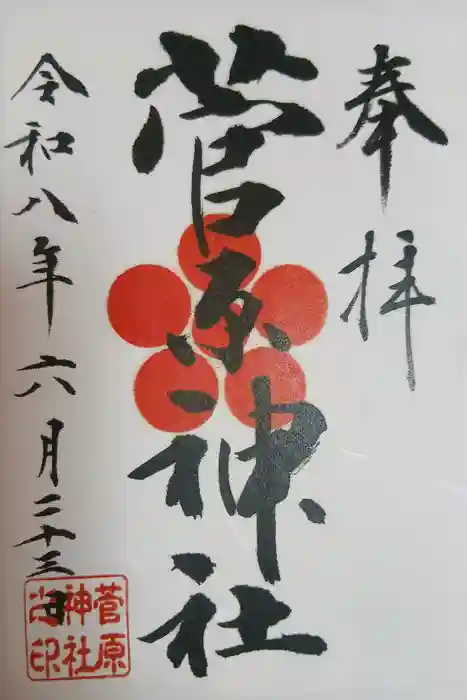 奉拝
菅原神社
令和八年六月二十三日
菅原
神社
之印